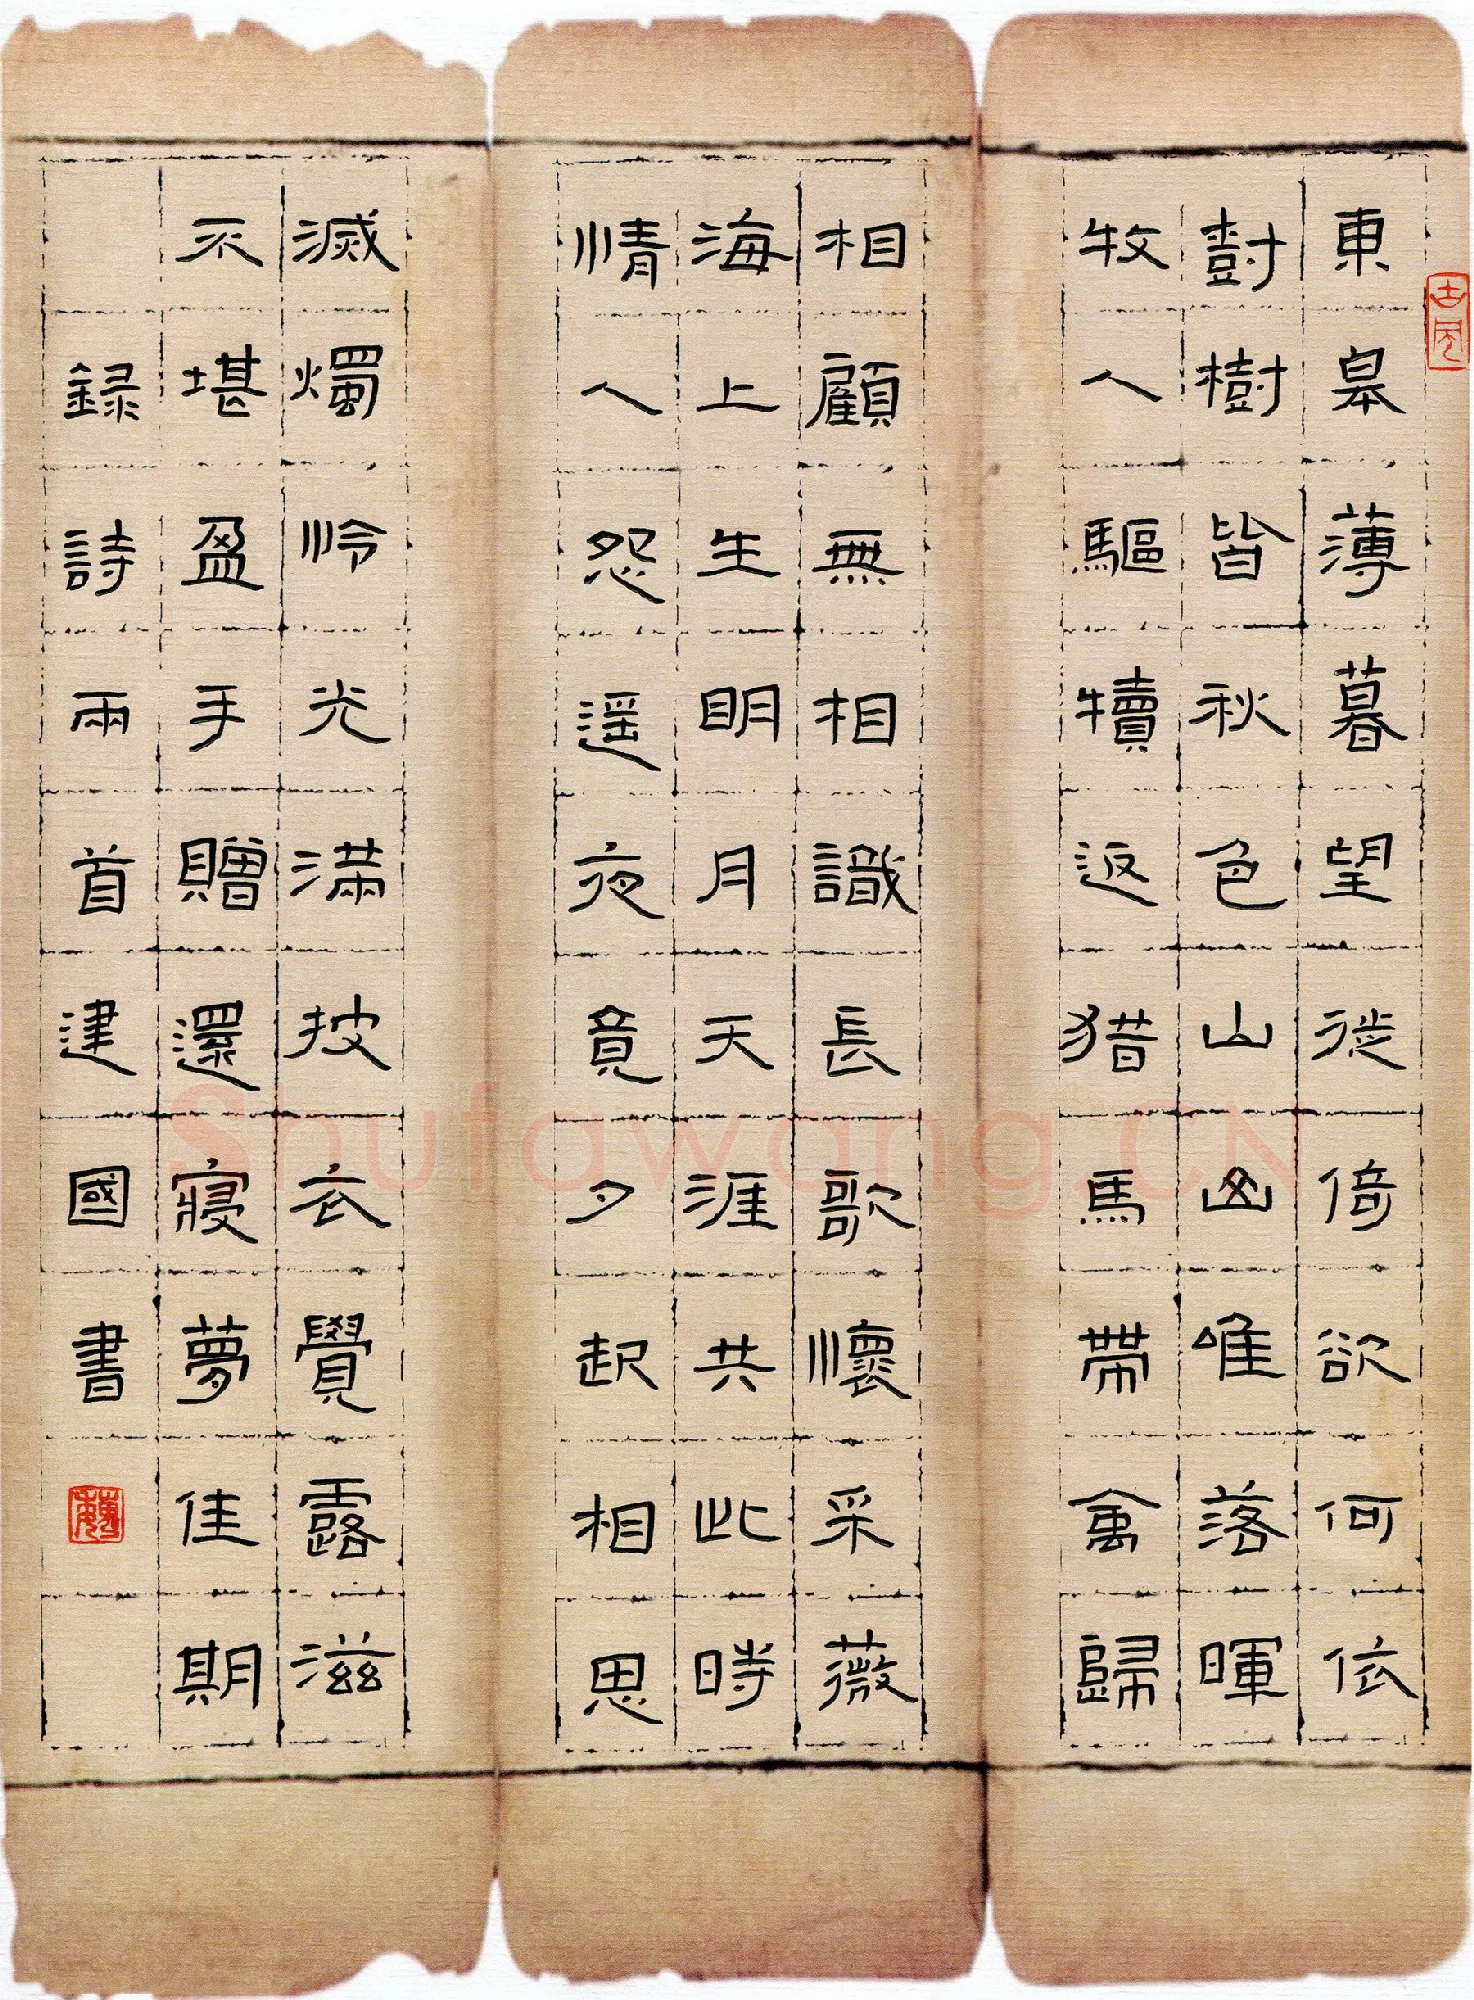 古風
東皋薄暮望徙倚欲何依
樹樹皆秋色山山唯落暉
牧人驅犢返猎馬帶禽歸
相顧無相識長歌懷采薇
海上生明月天涯共此時
情人怨遥夜竟夕起相思
滅燭怜光滿披衣覺露滋
不堪盈手贈還寢夢佳期
録詩兩首建國書
Shufawang.CN